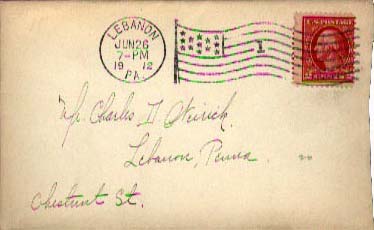 LEBANON
JUN 26
7-PM
19 12
PA.
1
U.S. POSTAGE
Mr. Charles D. Weirick.
Lebanon, Penna.
Chestnut St.